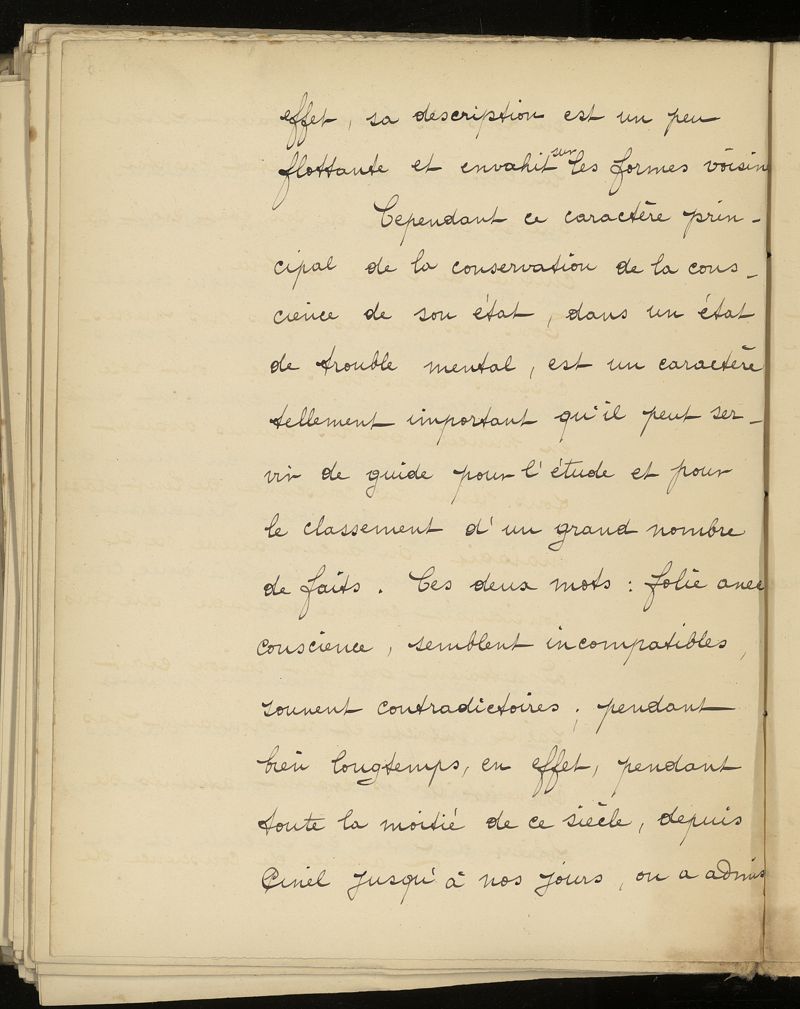 effet, sa description est un peu
flottante et envahit sur les formes voisin
Cependant ce caractère prin-
cipal de la conservation de la cons-
cience de son état, dans un état
de trouble mental, est un caractère
tellement important qu'il peut ser-
vir de guide pour l'étude et pour
le classement d'un grand nombre
de faits. Ces deux mots : folie avec
conscience, semblent incompatibles,
souvent contradictoires ; pendant
bien longtemps, en effet, pendant
toute la moitié de ce siècle, depuis
Pinel jusqu'à nos jours, on a admis